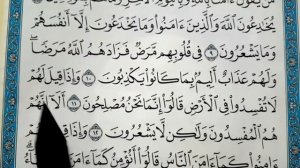 يُخَٰدِعُونَ ٱللَّهَ وَٱلَّذِينَ ءَامَنُوا۟ وَمَا يَخْدَعُونَ إِلَّآ أَنفُسَهُمْ
وَمَا يَشْعُرُونَ ۝٩ فِى قُلُوبِهِم مَّرَضٌ فَزَادَهُمُ ٱللَّهُ مَرَضًا ۖ
وَلَهُمْ عَذَابٌ أَلِيمٌۢ بِمَا كَانُوا۟ يَكْذِبُونَ ۝١٠ وَإِذَا قِيلَ لَهُمْ
لَا تُفْسِدُوا۟ فِى ٱلْأَرْضِ قَالُوٓا۟ إِنَّمَا نَحْنُ مُصْلِحُونَ ۝١١ أَلَآ إِنَّهُمْ
هُمُ ٱلْمُفْسِدُونَ وَلَٰكِن لَّا يَشْعُرُونَ ۝١٢ وَإِذَا قِيلَ لَهُمْ
ءَامِنُوا۟ كَمَآ ءَامَنَ ٱلنَّاسُ قَالُوٓا۟ أَنُؤْمِنُ كَمَآ ءَامَنَ